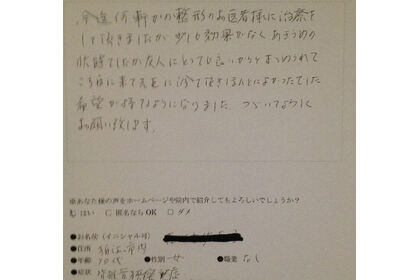 今迄何軒かの整形のお医者様に治療を
して頂きましたが少しも効果がなくあきらめの
状態でしたが友人にとても良いからとすすめられて
こちらに来て先生に診て頂きほんとによかったでした
希望が持てるようになりました。つづいてよろしく
お願い致します。
※あなた様の声をホームページや院内で紹介してもよろしいでしょうか?
はい □ 匿名ならOK □ ダメ
●お名前(イニシャル可)
●住所 狛江市内
●年齢 70代 ●性別 女 ●職業 なし
●症状 脊柱管狭窄症